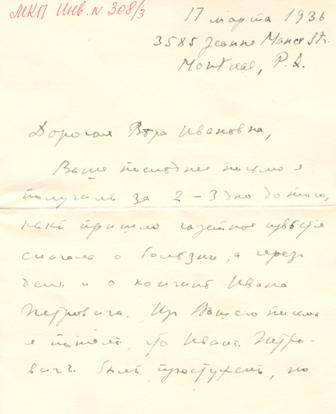 МКП Инв. N 308/3
17 марта 1936
3585 Jeanne Mance Str.
Montreal, P. Q.
Дорогая Вѣра Ивановна,
Ваше послѣднее письмо я
получилъ за 2-3 дня до того,
какъ пришло газетное извѣстіе
сначала о болѣзни, а через
день и о кончинѣ Ивана
Петровича. Изъ Вашего письма
я понялъ, что Иванъ Петро-
вичъ былъ простуженъ, но